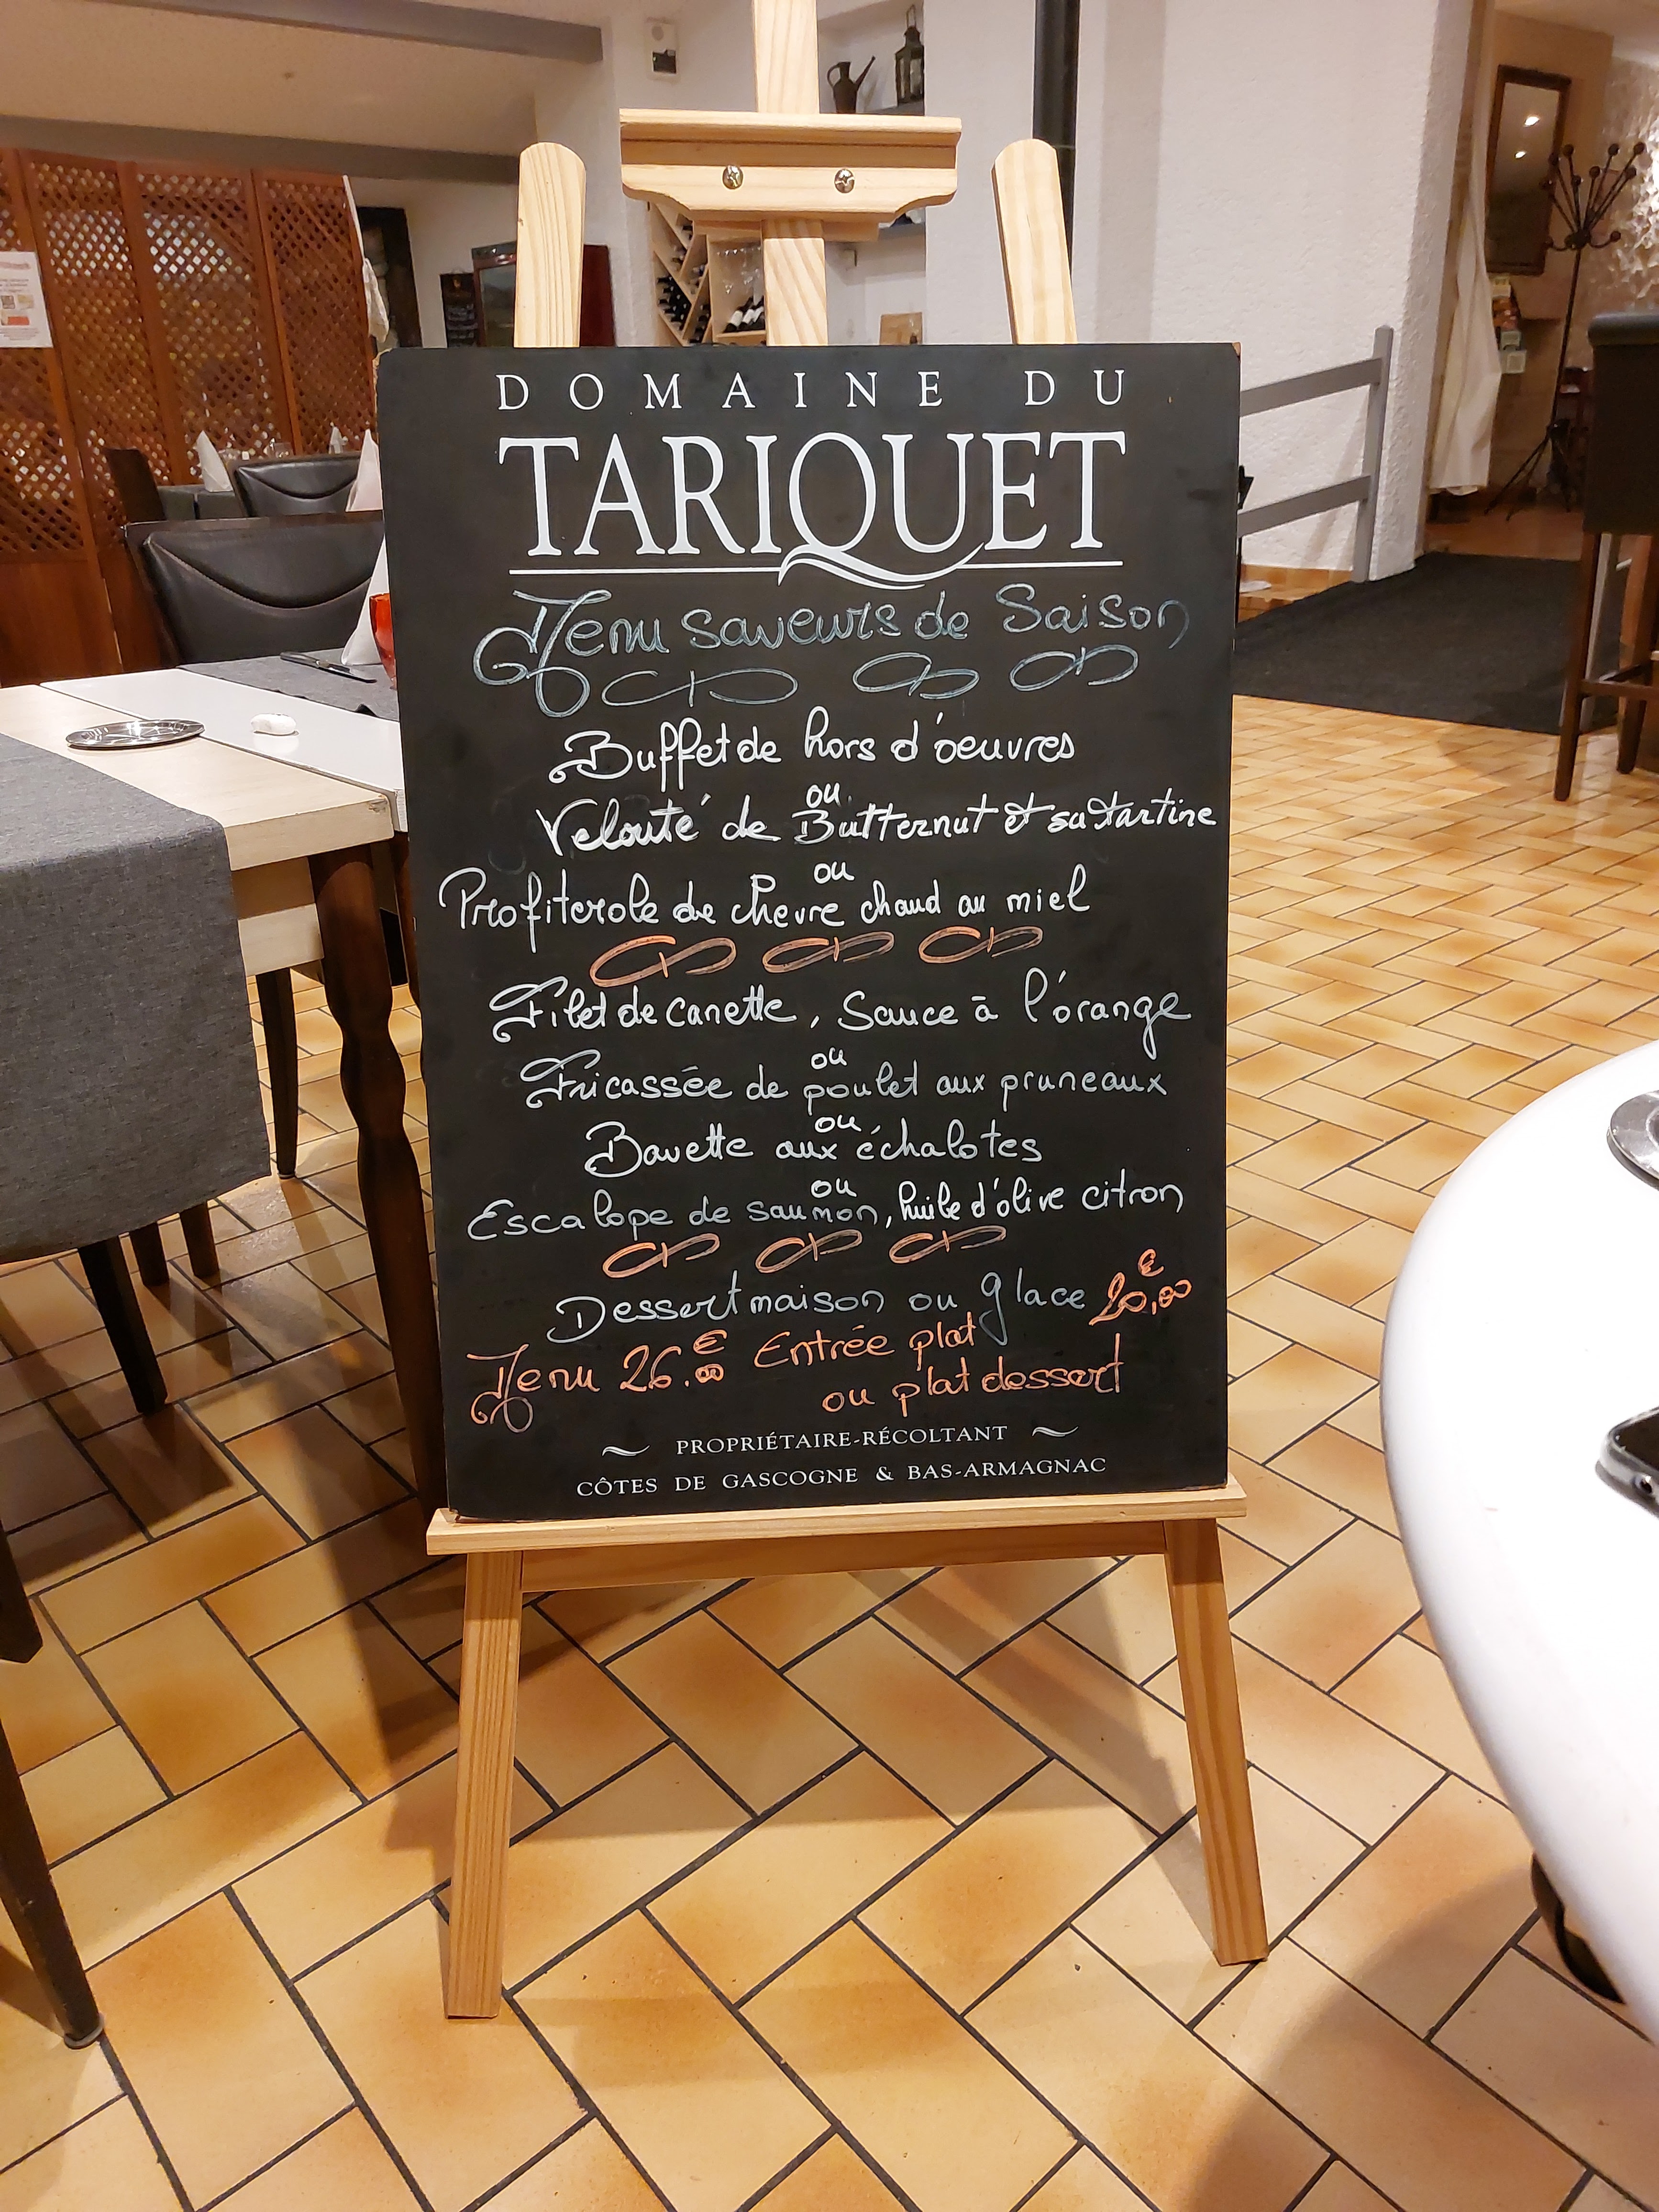 DOMAINE DU
TARIQUET
Menu saveurs de Saison
Buffet de hors d'oeuvres
ou
Velouté de Butternut et sa tartine
ou
Profiterole de chevre chaud au miel
Filet de canette, Sauce à l'orange
ou
Fricassée de poulet aux pruneaux
ou
Bavette aux échalotes
ou
Escalope de saumon, huile d'olive citron
Dessert maison ou glace 20,00 €
Menu 26.00 € Entrée plat
ou plat dessert
PROPRIÉTAIRE-RÉCOLTANT
CÔTES DE GASCOGNE & BAS-ARMAGNAC